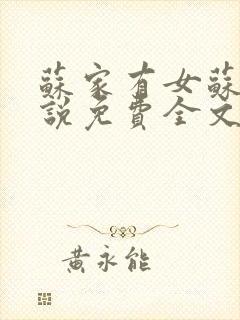 蘇家有女蘇
說免費全文
黃永能